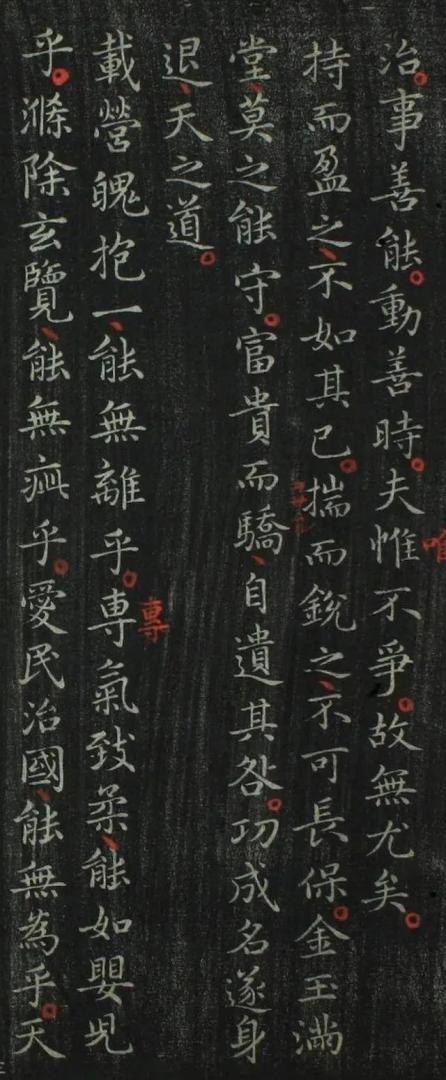 治。事善能。動善時。夫惟不爭。故無尤矣。
持而盈之、不如其已。揣而銳之、不可長保。金玉滿
堂、莫之能守。富貴而驕、自遺其咎。功成名遂身
退、天之道。
載營魄抱一、能無離乎。專氣致柔、能如嬰兒
乎。滌除玄覽、能無疵乎。愛民治國、能無為乎。天
唯
專